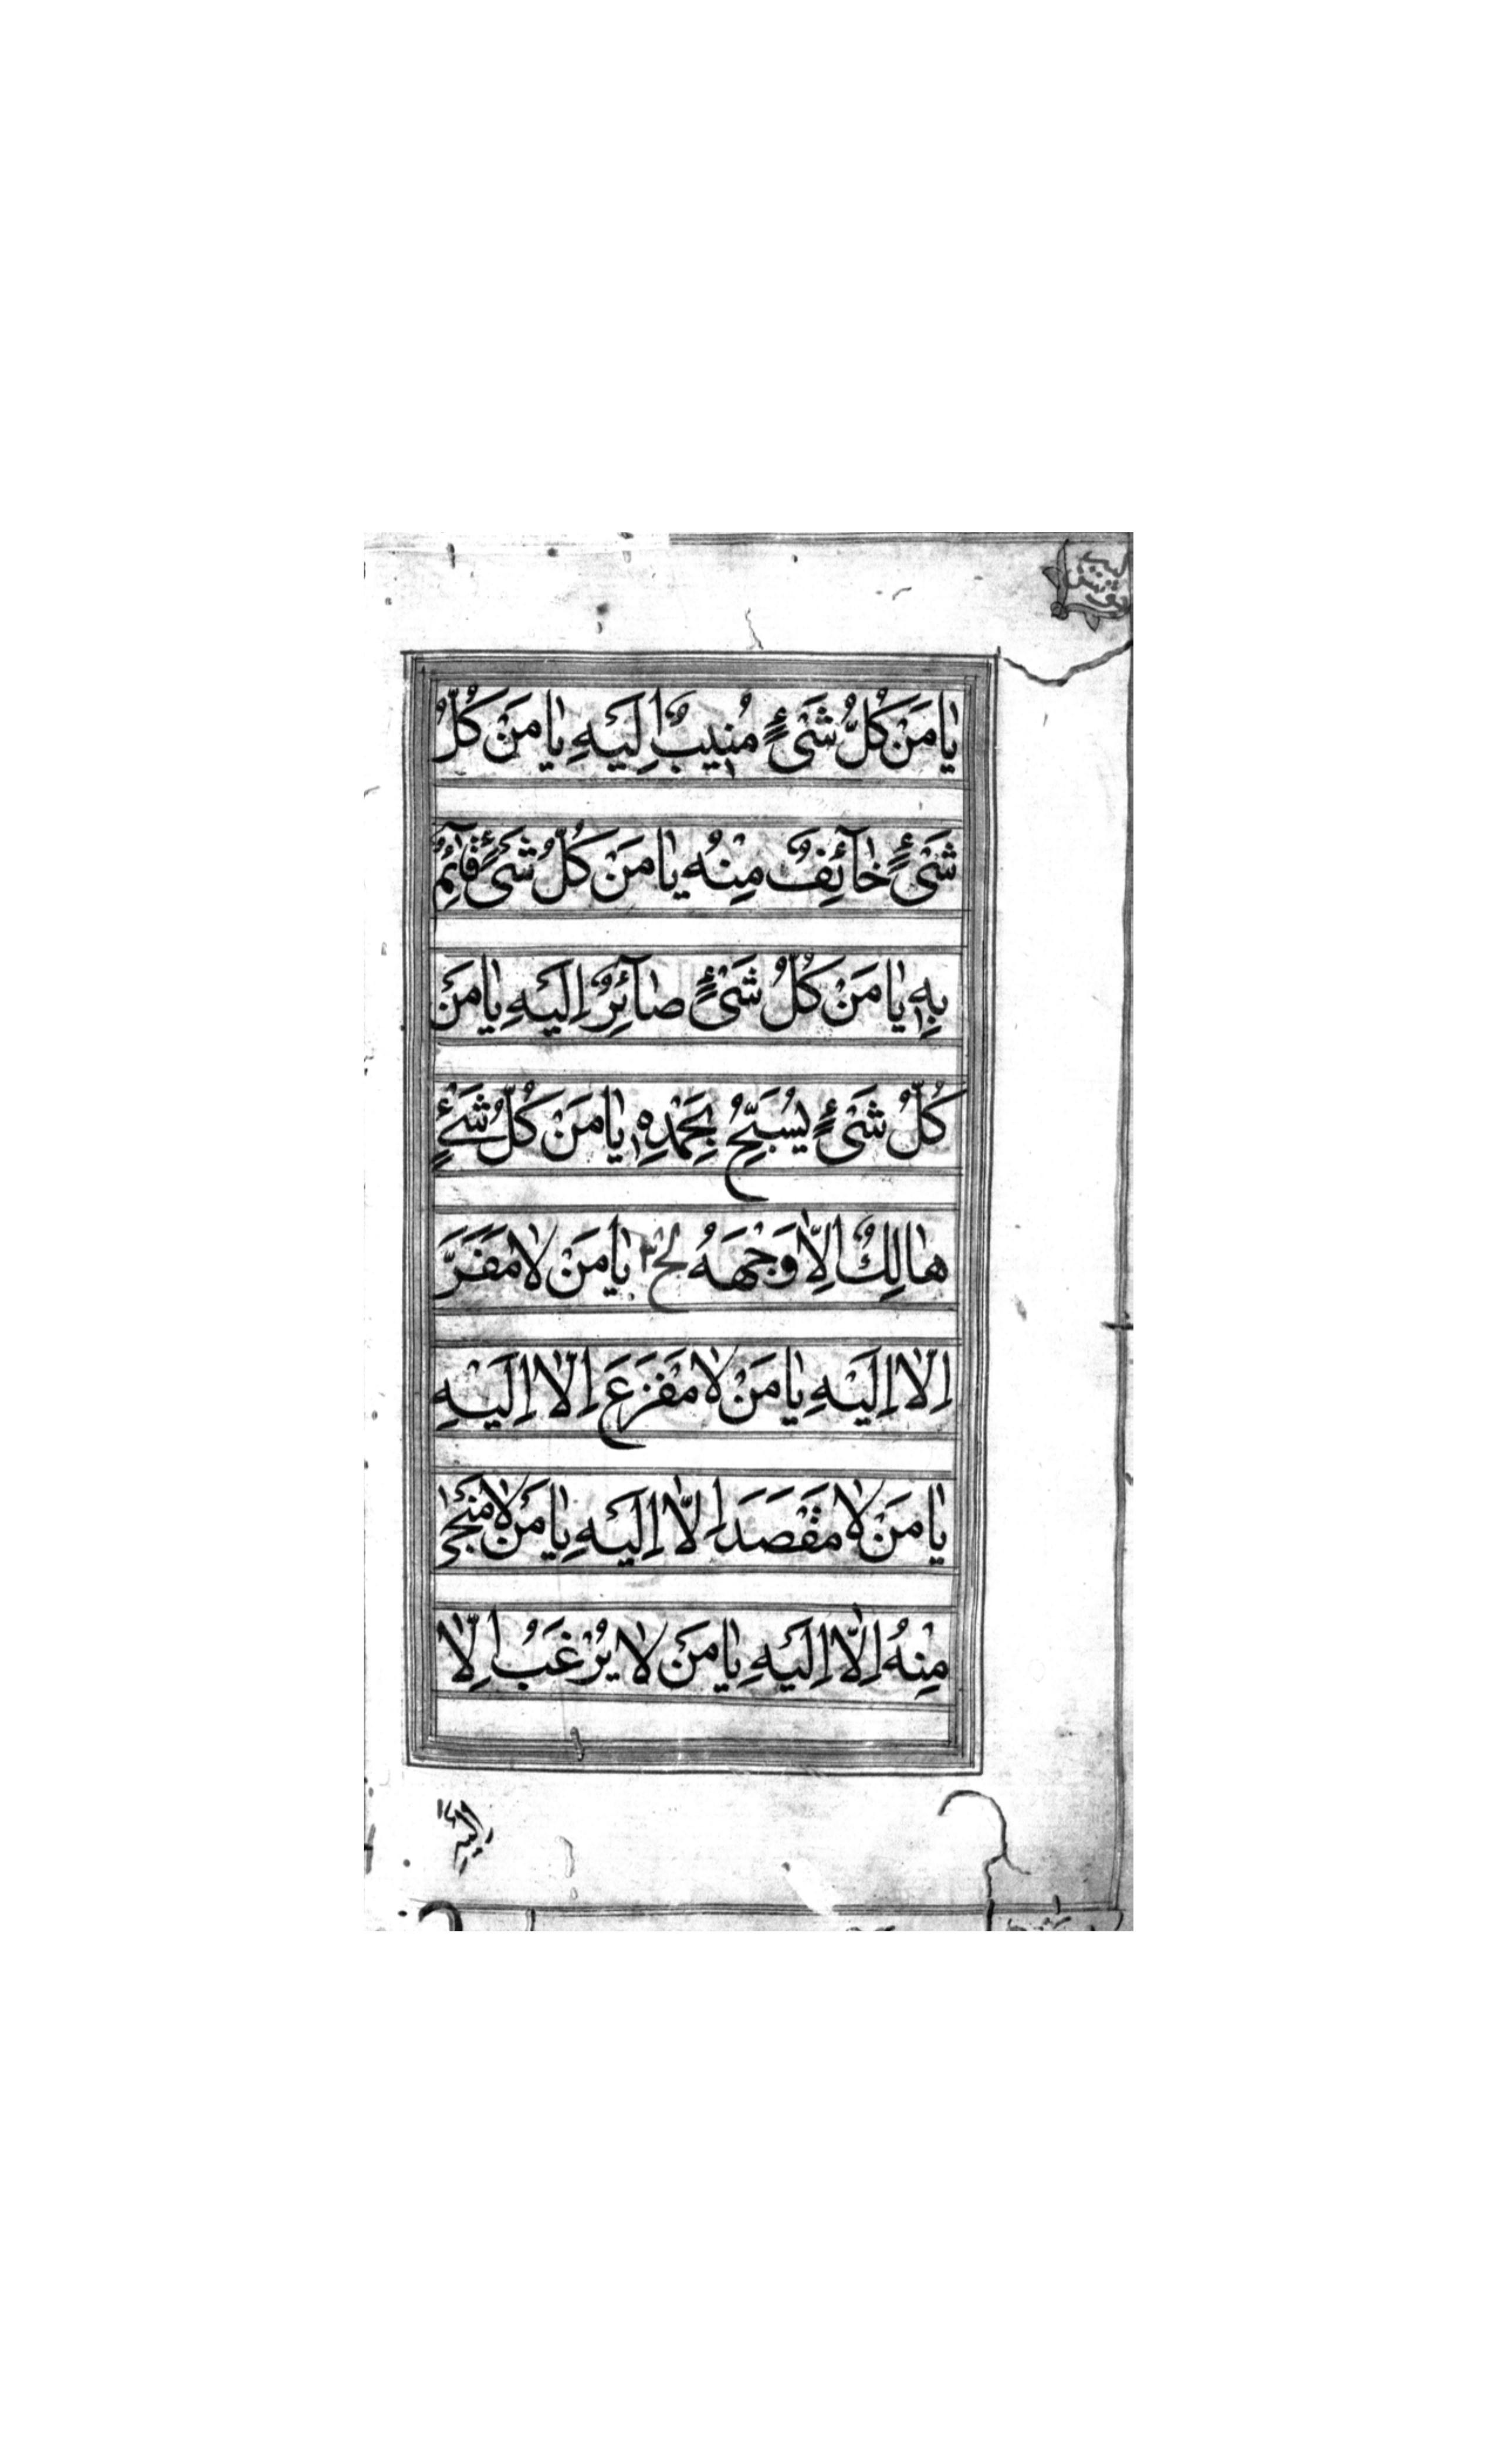 يٰا مَنْ كُلُّ شَىْءٍ مُنٖيبٌ اِلَيْهِ يٰا مَنْ كُلُّ
شَىْءٍ خٰآئِفٌ مِنْهُ يٰا مَنْ كُلُّ شَىْءٍ قٰآئِمٌ
بِهٖ يٰا مَنْ كُلُّ شَىْءٍ صٰآئِرٌ اِلَيْهِ يٰا مَنْ
كُلُّ شَىْءٍ يُسَبِّحُ بِحَمْدِهٖ يٰا مَنْ كُلُّ شَىْءٍ
هٰالِكٌ اِلّٰا وَجْهَهُ يٰا مَنْ لٰا مَفَرَّ
اِلّٰا اِلَيْهِ يٰا مَنْ لٰا مَفْزَعَ اِلّٰا اِلَيْهِ
يٰا مَنْ لٰا مَقْصَدَ اِلّٰا اِلَيْهِ يٰا مَنْ لٰا مَنْجٰى
مِنْهُ اِلّٰا اِلَيْهِ يٰا مَنْ لٰا يُرْغَبُ اِلّٰا